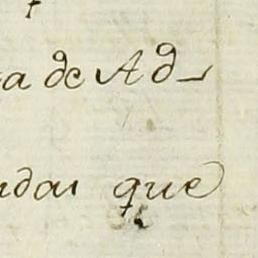 a de Ad-
ndar que